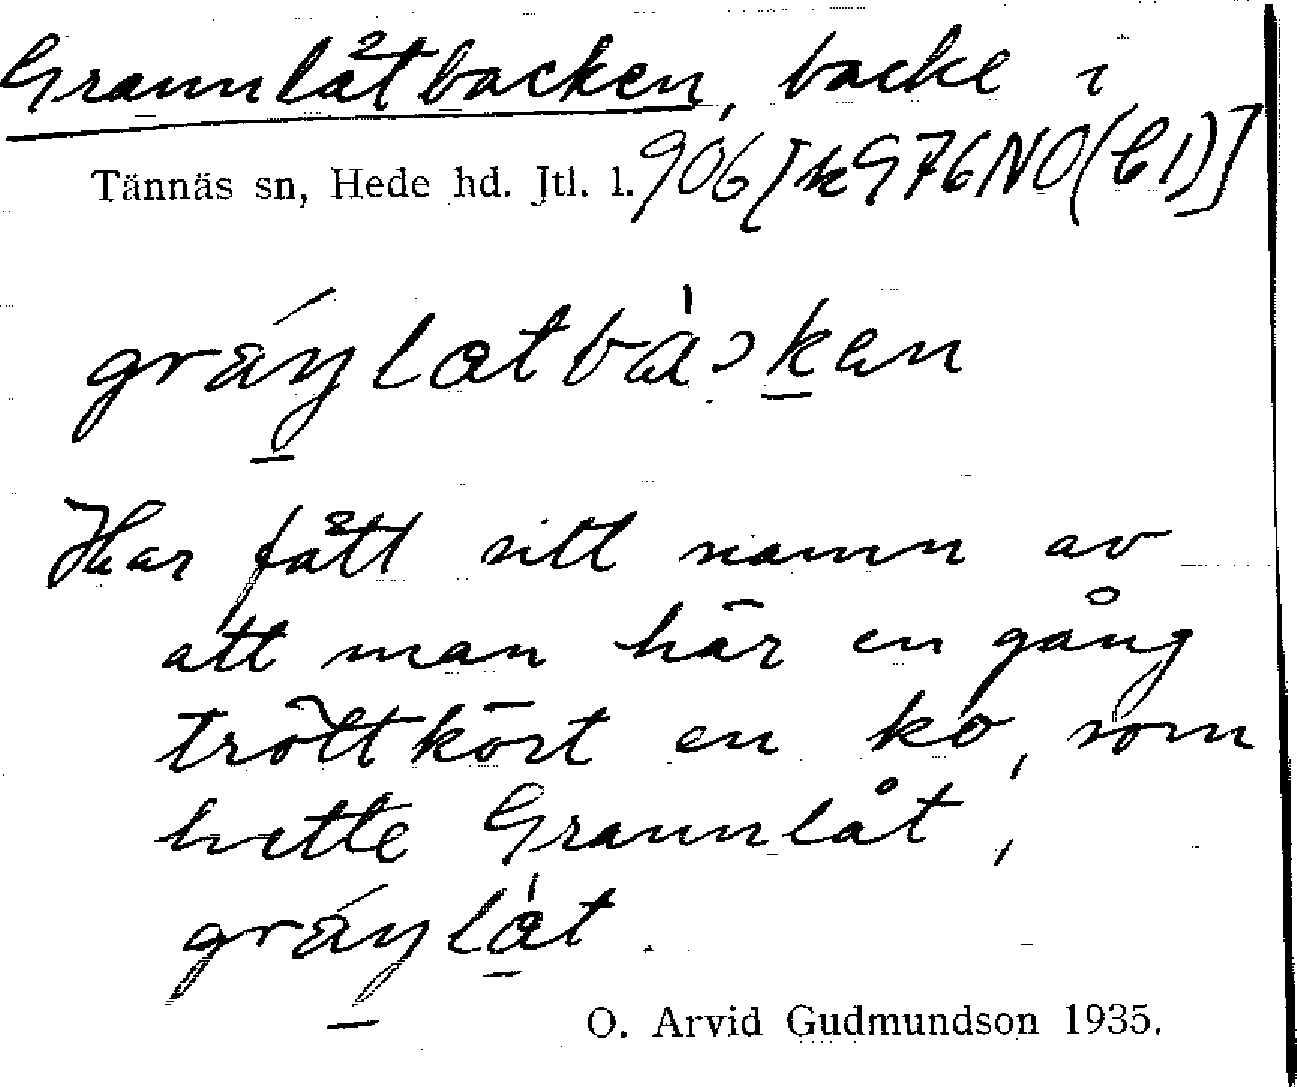 Grannlåtbacken, backe i
Tännäs sn, Hede hd. Jtl. l. 906 [k 976 NO (C1)]
Har fått sitt namn av
att man här en gång
tröttkört en ko, som
hette Grannlåt,
O. Arvid Gudmundson 1935.